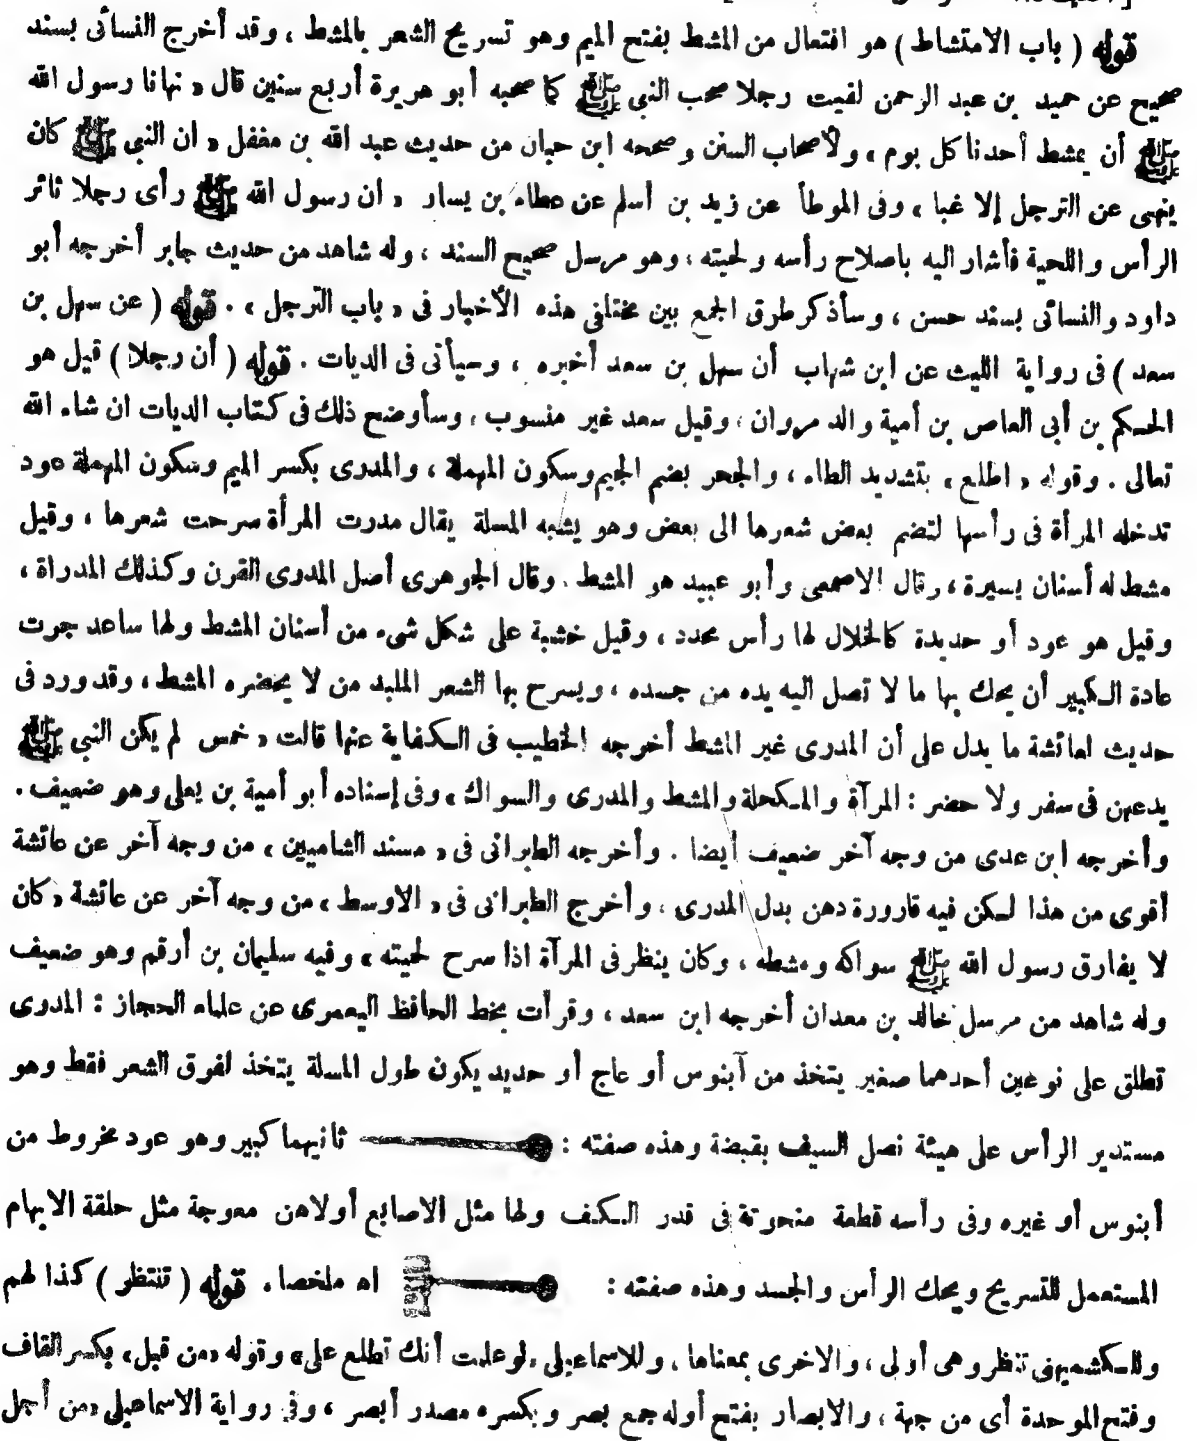 قوله ( باب الامتشاط ) هو افتعال من المشط بفتح الميم وهو تسريح الشعر بالمشط ، وقد أخرج النسائى بسند
صحيح عن حميد بن عبد الرحمن لقيت رجلا صحب النبي ﷺ كما صحبه أبو هريرة أربع سنين قال « نهانا رسول الله
ﷺ أن يمشط أحدنا كل يوم » ولأصحاب السنن وصححه ابن حبان من حديث عبد الله بن مغفل « ان النبي ﷺ كان
ينهى عن الترجل إلا غبا » وفى الموطأ عن زيد بن أسلم عن عطاء بن يسار « ان رسول الله ﷺ رأى رجلا ثائر
الرأس واللحية فأشار اليه باصلاح رأسه ولحيته ، وهو مرسل صحيح السند ، وله شاهد من حديث جابر أخرجه أبو
داود والنسائى بسند حسن ، وسأذكر طرق الجمع بين مختلفى هذه الأخبار فى « باب الترجل » . قوله ( عن سهل بن
سعد ) فى رواية الليث عن ابن شهاب أن سهل بن سعد أخبره ، وسيأتى فى الديات . قوله ( أن رجلا ) قيل هو
الحكم بن أبى العاص بن أمية والد مروان ، وقيل سعد غير منسوب ، وسأوضح ذلك فى كتاب الديات ان شاء الله
تعالى . وقوله « اطلع » بتشديد الطاء ، والجحر بضم الجيم وسكون المهملة ، والمدرى بكسر الميم وسكون المهملة عود
تدخله المرأة فى رأسها لتضم بعض شعرها الى بعض وهو يشبه المسلة يقال مدرت المرأة سرحت شعرها ، وقيل
مشط له أسنان يسيرة ، وقال الاصمعى وأبو عبيد هو المشط . وقال الجوهرى أصل المدرى القرن وكذلك المدراة ،
وقيل هو عود أو حديدة كالخلال لها رأس محدد ، وقيل خشبة على شكل شىء من أسنان المشط ولها ساعد جرت
عادة الكبير أن يحك بها ما لا تصل اليه يده من جسده ، ويسرح بها الشعر الملبد من لا يحضره المشط ، وقد ورد فى
حديث لعائشة ما يدل على أن المدرى غير المشط أخرجه الخطيب فى الكفاية عنها قالت « خمس لم يكن النبي ﷺ
يدعهن فى سفر ولا حضر : المرآة والمكحلة والمشط والمدرى والسواك » وفى إسناده أبو أمية بن يعلى وهو ضعيف .
وأخرجه ابن عدى من وجه آخر ضعيف أيضا . وأخرجه الطبرانى فى « مسند الشاميين » من وجه آخر عن عائشة
أقوى من هذا لكن فيه قارورة دهن بدل المدرى ، وأخرج الطبرانى فى « الاوسط » من وجه آخر عن عائشة « كان
لا يفارق رسول الله ﷺ سواكه ومشطه ، وكان ينظر فى المرآة اذا سرح لحيته » وفيه سليمان بن أرقم وهو ضعيف
وله شاهد من مرسل خالد بن معدان أخرجه ابن سعد ، وقرأت بخط الحافظ اليعمرى عن علماء الحجاز : المدرى
تطلق على نوعين أحدهما صغير يتخذ من آبنوس أو عاج أو حديد يكون طول المسلة يتخذ لفرق الشعر فقط وهو
مستدير الرأس على هيئة نصل السيف بقبضة وهذه صفته : ثانيهما كبير وهو عود مخروط من
أبنوس أو غيره وفى رأسه قطعة منحوتة فى قدر الكف ولها مثل الاصابع أولاهن معوجة مثل حلقة الابهام
المستعمل للتسريح ويحك الرأس والجسد وهذه صفته : اه ملخصا . قوله ( تنتظر ) كذا لهم
وللكشميهنى تنظر وهى أولى ، والاخرى بمعناها ، وللاسماعيلى « لو علمت أنك تطلع على » وقوله « من قبل » بكسر القاف
وفتح الموحدة أى من جهة ، والابصار بفتح أوله جمع بصر وبكسره مصدر أبصر ، وفى رواية الاسماعيلى « من أجل